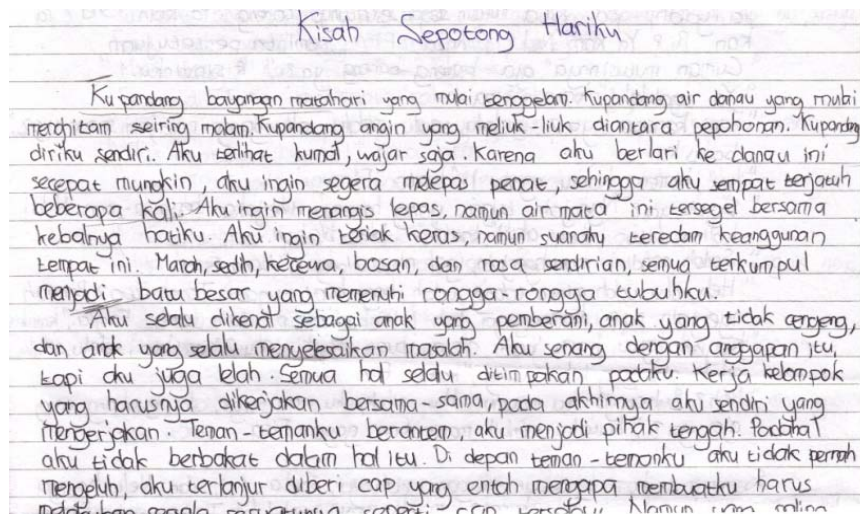 Kisah Sepotong Hariku
Kupandang bayangan matahari yang mulai tenggelam. Kupandang air danau yang mulai
menghitam seiring malam. Kupandang angin yang meliuk-liuk diantara pepohonan. Kupandang
diriku sendiri. Aku terlihat kumal, wajar saja. Karena aku berlari ke danau ini
secepat mungkin, aku ingin segera melepas penat, sehingga aku sempat terjatuh
beberapa kali. Aku ingin menangis lepas, namun air mata ini tersegel bersama
kebalnya hatiku. Aku ingin teriak keras, namun suaraku teredam keanggunan
tempat ini. Marah, sedih, kecewa, bosan, dan rasa sendirian, semua terkumpul
menjadi batu besar yang memenuhi rongga-rongga tubuhku.
Aku selalu dikenal sebagai anak yang pemberani, anak yang tidak cengeng,
dan anak yang selalu menyelesaikan masalah. Aku senang dengan anggapan itu,
tapi aku juga lelah. Semua hal selalu ditimpakan padaku. Kerja kelompok
yang harusnya dikerjakan bersama-sama, pada akhirnya aku sendiri yang
mengerjakan. Teman-temanku berantem, aku menjadi pihak tengah. Padahal
aku tidak berbakat dalam hal itu. Di depan teman-temanku aku tidak pernah
mengeluh, aku terlanjur diberi cap yang entah mengapa membuatku harus